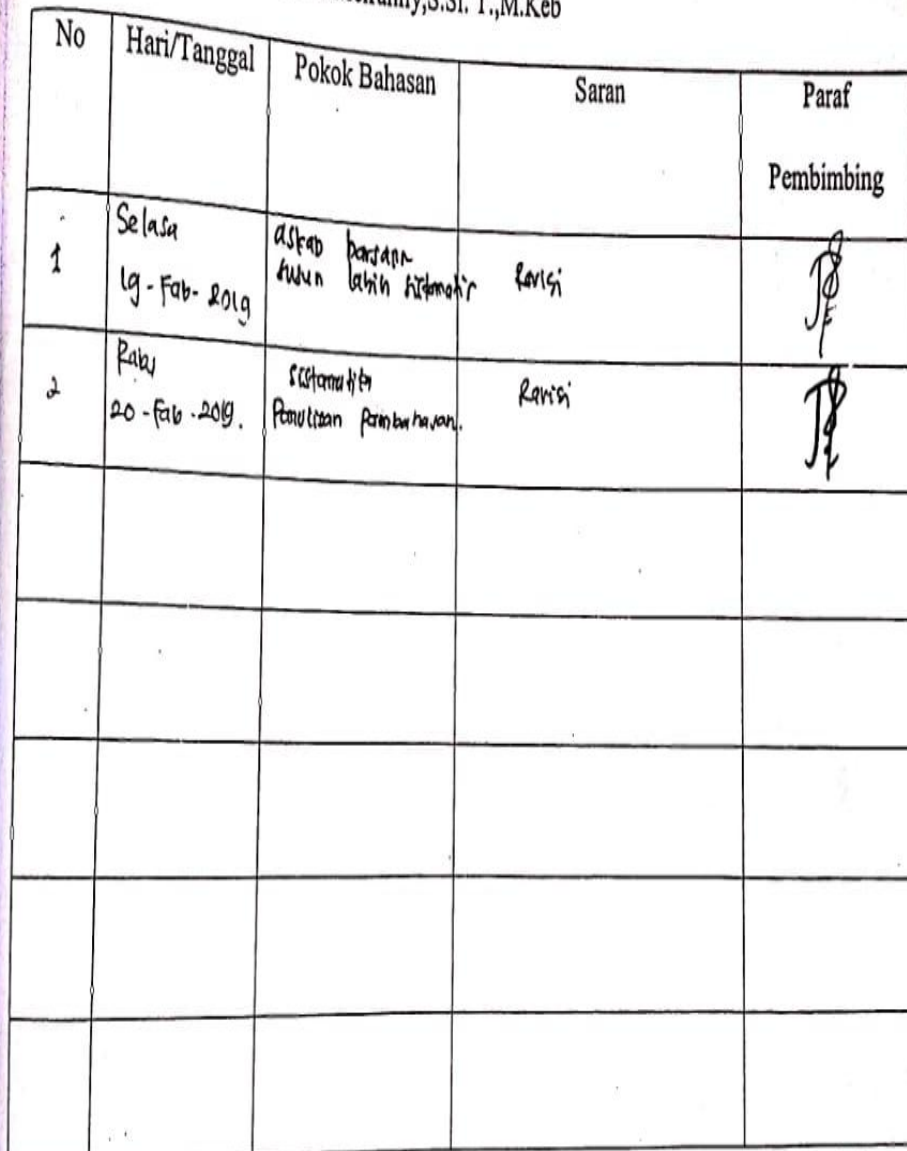 No Hari/Tanggal Pokok Bahasan Saran Paraf
Pembimbing
1 Selasa
19-Feb-2019
askeb
susun lebih sistematis
Revisi
2 Rabu
20-Feb-2019.
sistematika
Penulisan Pembahasan.
Revisi